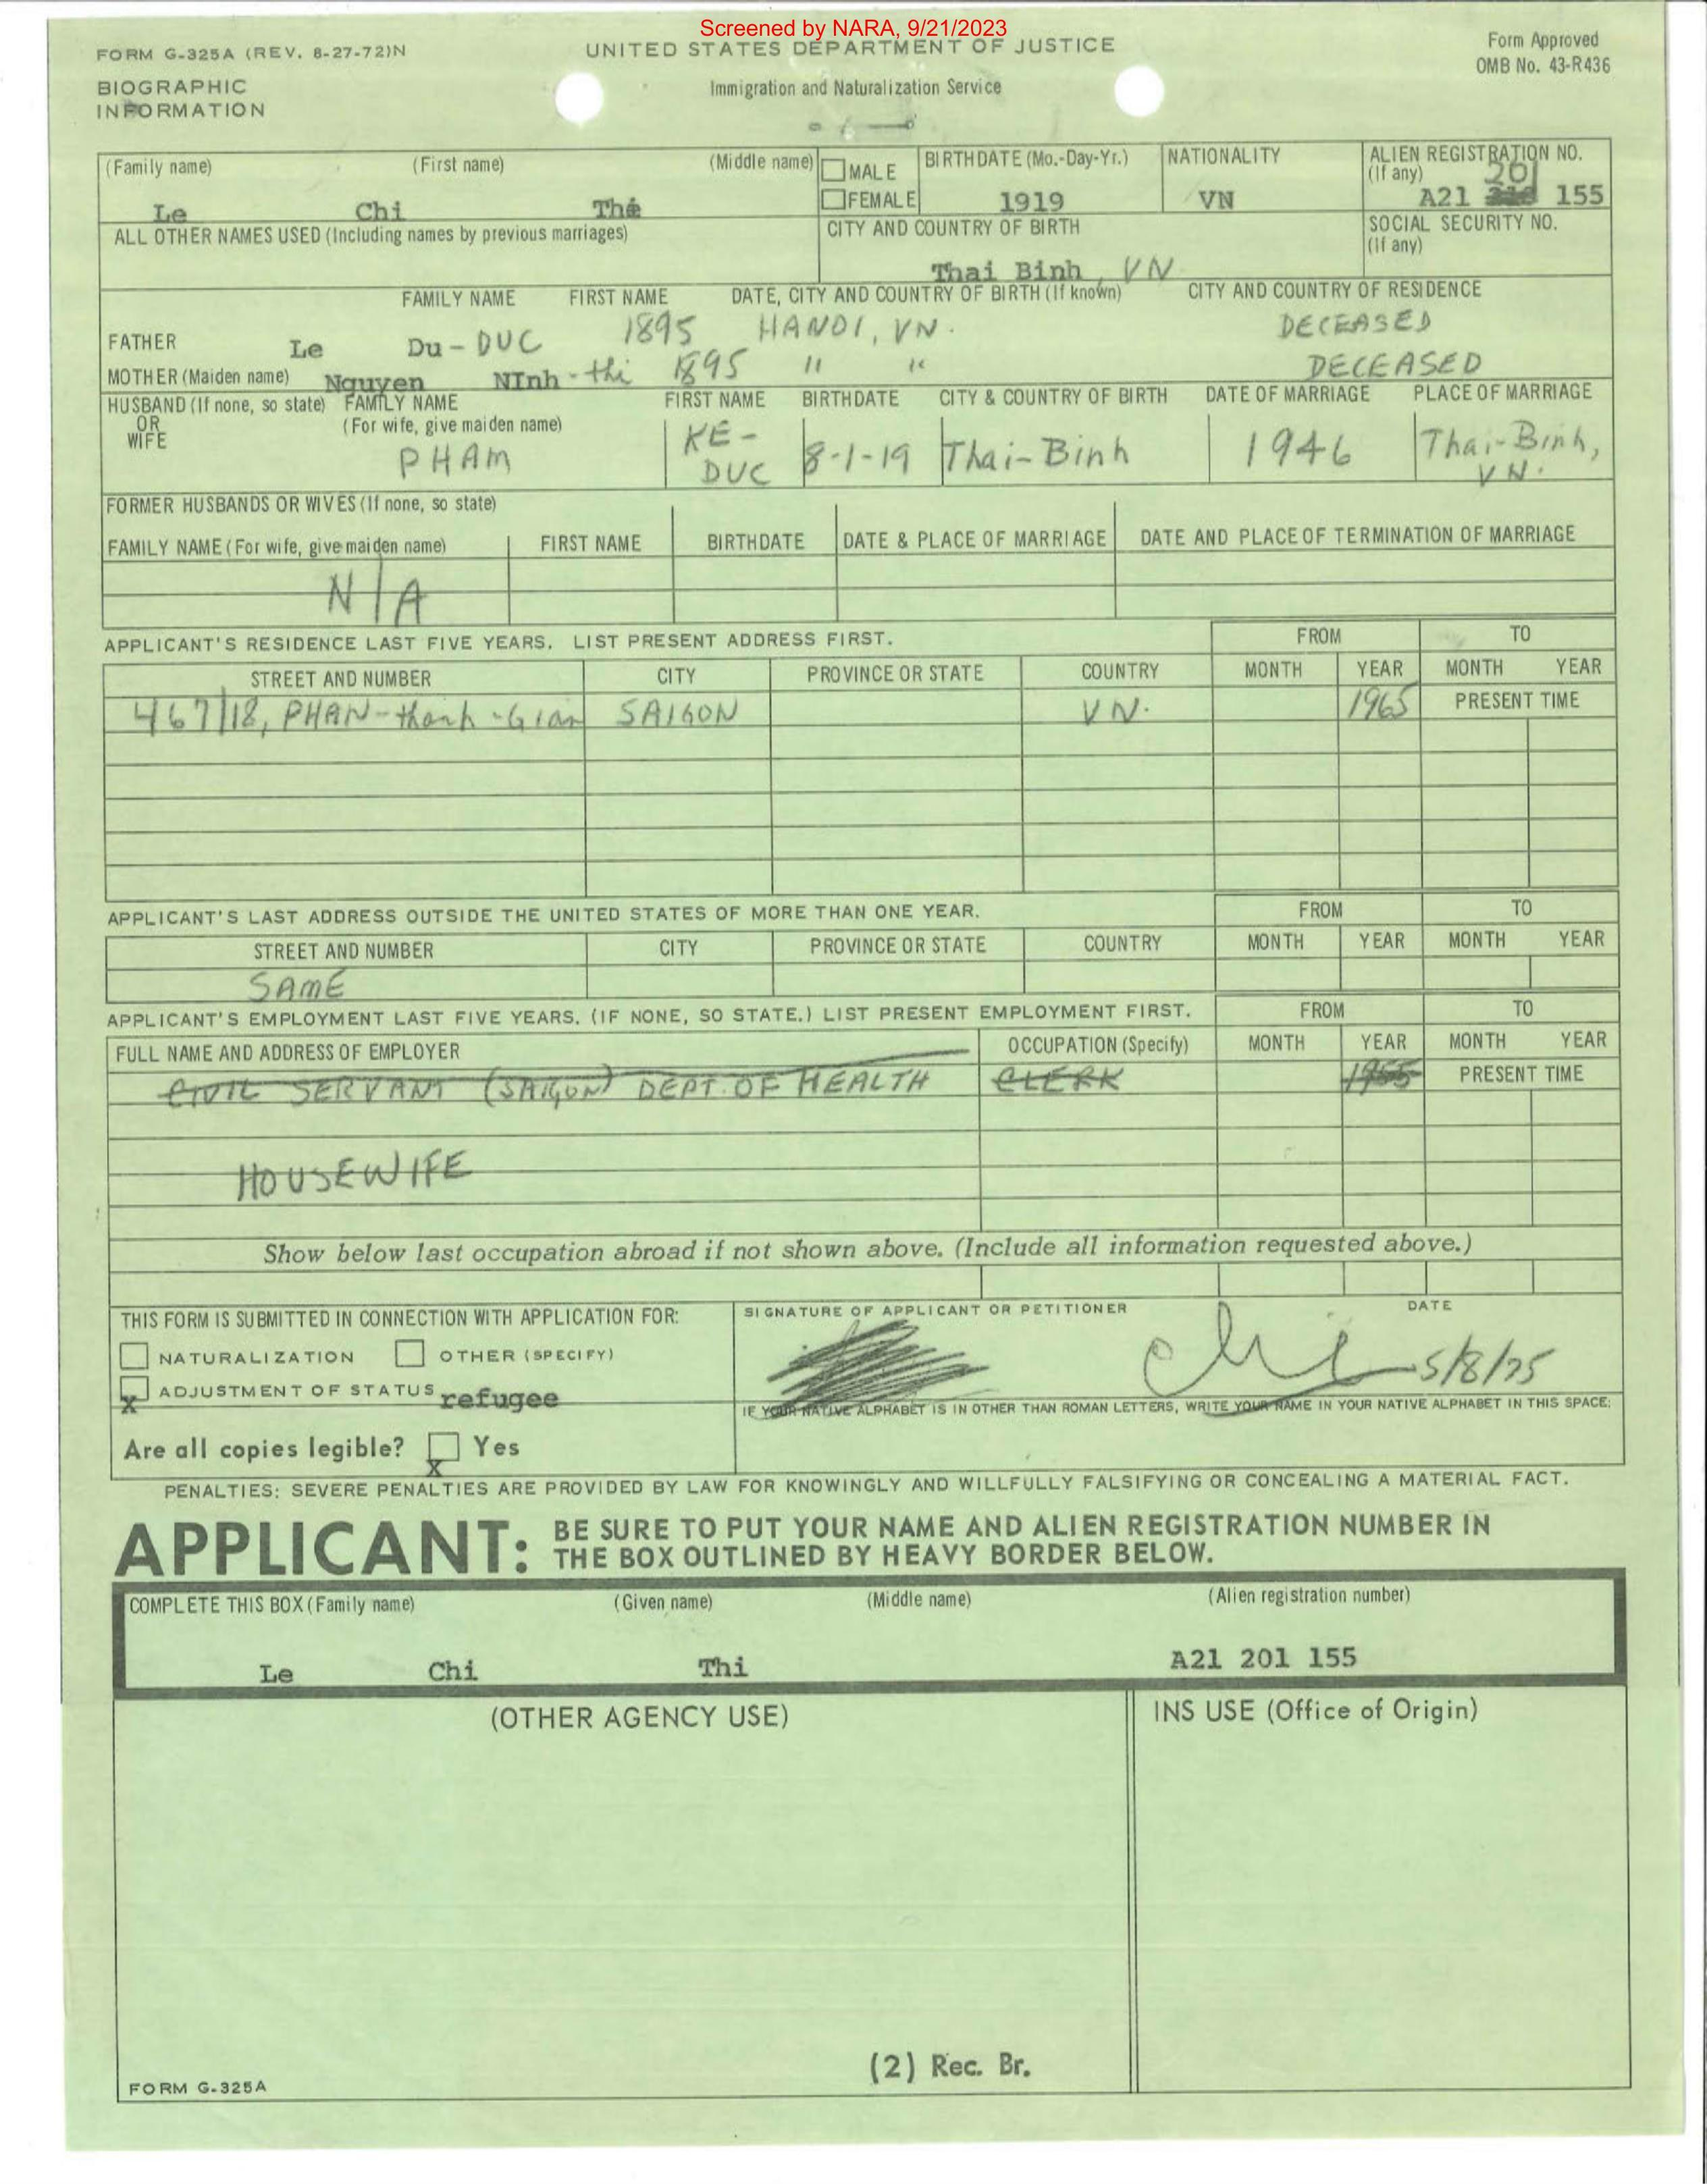 Screened by NARA, 9/21/2023
FORM G-325A (REV. 8-27-72)N
UNITED STATES DEPARTMENT OF JUSTICE
Form Approved
OMB No. 43-R436
BIOGRAPHIC
INFORMATION
Immigration and Naturalization Service
(Family name) (First name) (Middle name)
MALE
FEMALE
BIRTHDATE (Mo.-Day-Yr.)
1919
NATIONALITY
VN
ALIEN REGISTRATION NO.
(If any) 201
A21 155
Le Chi Thi
ALL OTHER NAMES USED (Including names by previous marriages)
CITY AND COUNTRY OF BIRTH
Thai Binh, VN
SOCIAL SECURITY NO.
(If any)
FAMILY NAME FIRST NAME DATE, CITY AND COUNTRY OF BIRTH (If known) CITY AND COUNTRY OF RESIDENCE
FATHER Le Du-DUC 1895 HANOI, VN. DECEASED
MOTHER (Maiden name) Nguyen NInh-thi 1895 " " DECEASED
HUSBAND (If none, so state) FAMILY NAME FIRST NAME BIRTHDATE CITY & COUNTRY OF BIRTH DATE OF MARRIAGE PLACE OF MARRIAGE
OR
WIFE
(For wife, give maiden name)
PHAM KE-DUC 8-1-19 Thai-Binh 1946 Thai-Binh, VN.
FORMER HUSBANDS OR WIVES (If none, so state)
FAMILY NAME (For wife, give maiden name) FIRST NAME BIRTHDATE DATE & PLACE OF MARRIAGE DATE AND PLACE OF TERMINATION OF MARRIAGE
N/A
APPLICANT'S RESIDENCE LAST FIVE YEARS. LIST PRESENT ADDRESS FIRST. FROM TO
STREET AND NUMBER CITY PROVINCE OR STATE COUNTRY MONTH YEAR MONTH YEAR
467/18, PHAN-thanh-Gian SAIGON VN. 1965 PRESENT TIME
APPLICANT'S LAST ADDRESS OUTSIDE THE UNITED STATES OF MORE THAN ONE YEAR. FROM TO
STREET AND NUMBER CITY PROVINCE OR STATE COUNTRY MONTH YEAR MONTH YEAR
SAME
APPLICANT'S EMPLOYMENT LAST FIVE YEARS. (IF NONE, SO STATE.) LIST PRESENT EMPLOYMENT FIRST. FROM TO
FULL NAME AND ADDRESS OF EMPLOYER OCCUPATION (Specify) MONTH YEAR MONTH YEAR
CIVIL SERVANT (SAIGON) DEPT. OF HEALTH CLERK PRESENT TIME
HOUSEWIFE
Show below last occupation abroad if not shown above. (Include all information requested above.)
THIS FORM IS SUBMITTED IN CONNECTION WITH APPLICATION FOR:
NATURALIZATION OTHER (SPECIFY)
x ADJUSTMENT OF STATUS refugee
Are all copies legible? x Yes
SIGNATURE OF APPLICANT OR PETITIONER DATE
Chi 5/8/75
IF YOUR NATIVE ALPHABET IS IN OTHER THAN ROMAN LETTERS, WRITE YOUR NAME IN YOUR NATIVE ALPHABET IN THIS SPACE:
PENALTIES: SEVERE PENALTIES ARE PROVIDED BY LAW FOR KNOWINGLY AND WILLFULLY FALSIFYING OR CONCEALING A MATERIAL FACT.
APPLICANT: BE SURE TO PUT YOUR NAME AND ALIEN REGISTRATION NUMBER IN
THE BOX OUTLINED BY HEAVY BORDER BELOW.
COMPLETE THIS BOX (Family name) (Given name) (Middle name) (Alien registration number)
Le Chi Thi A21 201 155
(OTHER AGENCY USE)
INS USE (Office of Origin)
(2) Rec. Br.
FORM G-325A